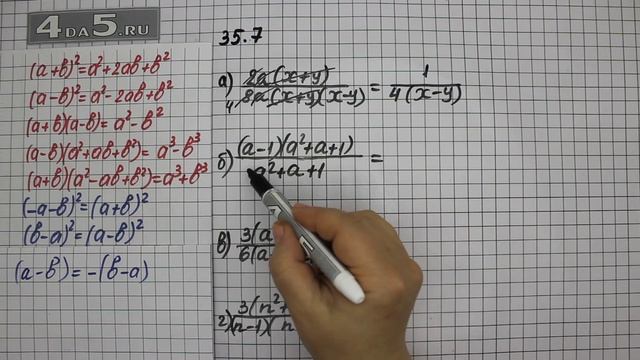 4DA5.RU
(a+b)²=a²+2ab+b²
(a-b)²=a²-2ab+b²
(a+b)(a-b)=a²-b²
(a-b)(a²+ab+b²)=a³-b³
(a+b)(a²-ab+b²)=a³+b³
(-a-b)²=(a+b)²
(b-a)²=(a-b)²
(a-b)=-(b-a)
35.7
а) 2a(x+y) / 4 8a(x+y)(x-y) = 1 / 4(x-y)
б) (a-1)(a²+a+1) / a²+a+1 =
в) 3(a / 6(a
г) 3(n² / (n-1)(n